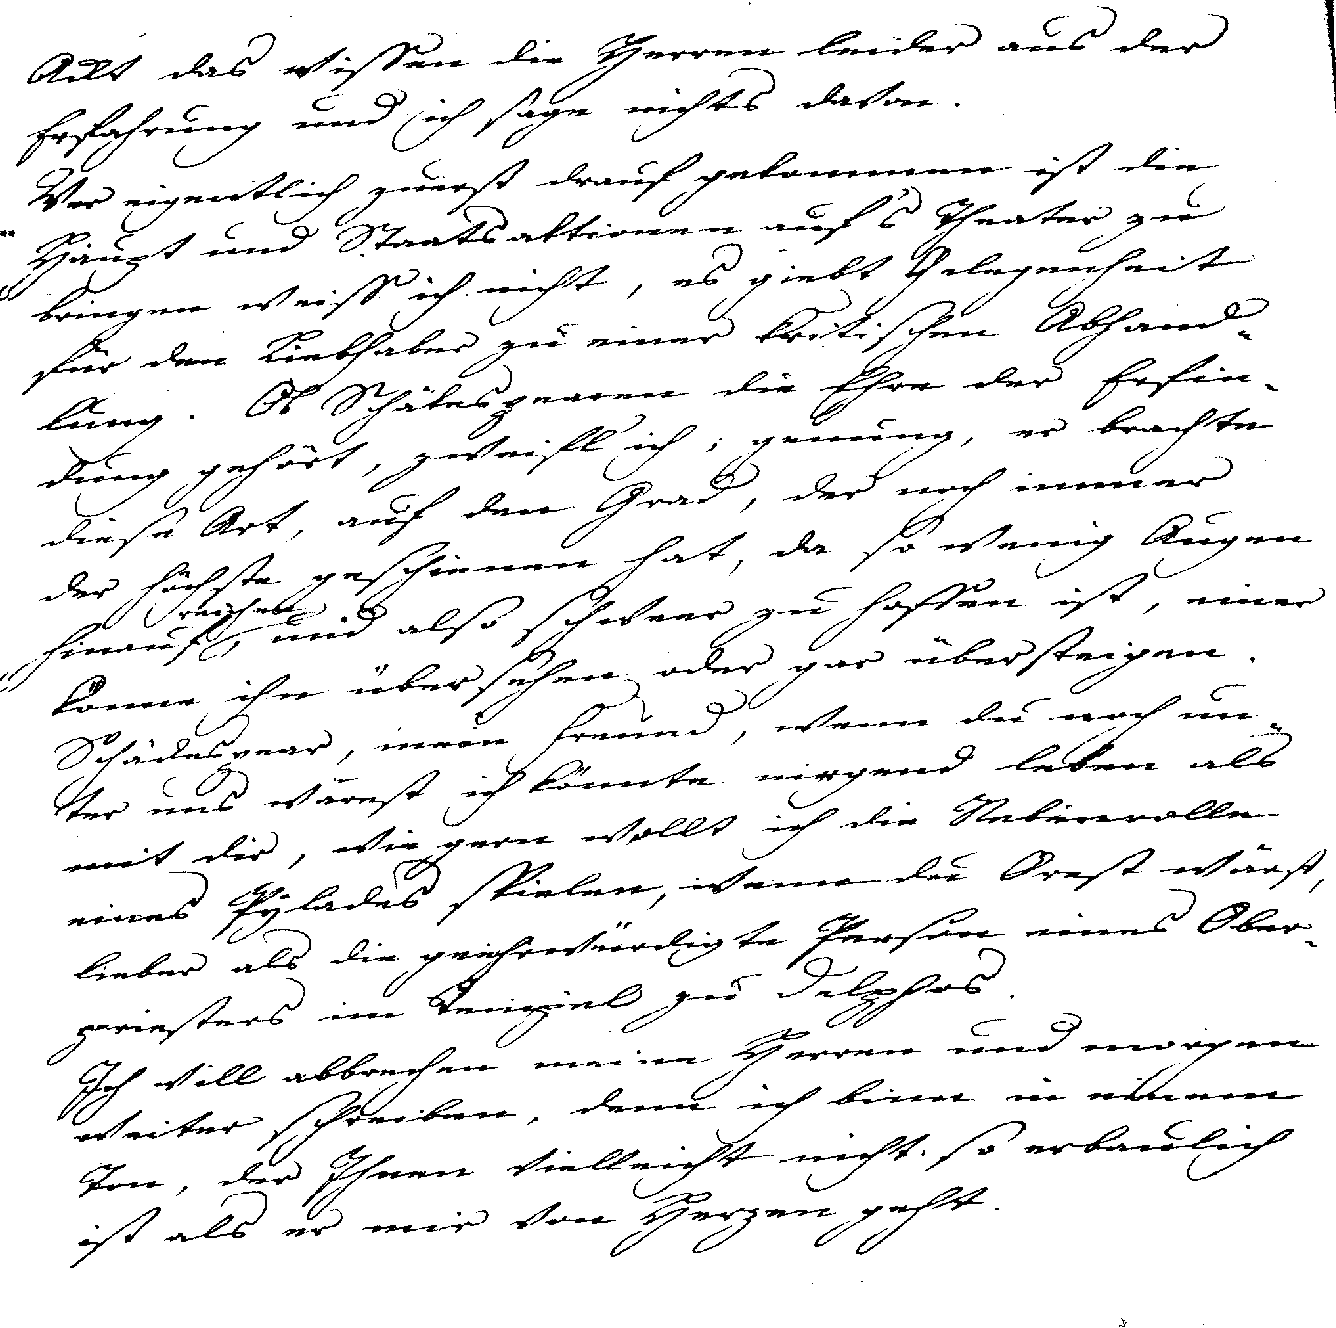 Allt das wissen die Herren leider aus der
Erfahrung und ich sage nichts davon.
Wer eigentlich zuerst drauf gekommen ist die
Haupt und Staatsaktionen auf's Theater zu
bringen weiss ich nicht, es giebt Gelegenheit
für den Liebhaber zu einer kritischen Abhand-
lung. Ob Schäkespearen die Ehre der Erfin-
dung gehört, zweifl' ich; genung, er brachte
diese Art, auf den Grad, der noch immer
der höchste geschienen hat, da so wenig Augen
hinauf reichen, und also schweer zu hoffen ist, einer
könne ihn übersehen oder gar übersteigen.
Schäckespear, mein Freund, wenn du noch un-
ter uns wärest ich könnte nirgend leben als
mit dir, wie gern wollt ich die Nebenrolle
eines Pylades spielen, wenn du Orest wärst,
lieber als die geehrwürdigte Person eines Ober-
priesters im Tempel zu Delphos.
Ich will abbrechen meine Herren und morgen
weiter schreiben, denn ich binn in einem
Ton, der Ihnen vielleicht nicht so erbaulich
ist als er mir von Herzen geht.